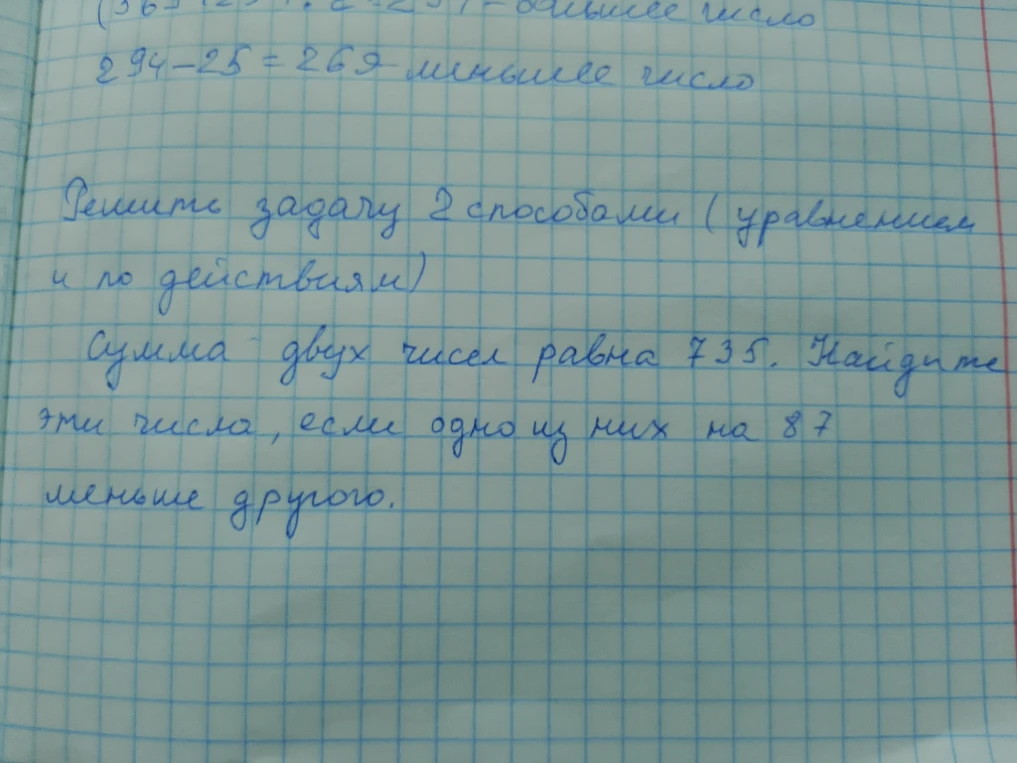 большее число
294-25=269-меньшее число
Решить задачу 2 способами (уравнением
и по действиям)
Сумма двух чисел равна 735. Найдите
эти числа, если одно из них на 87
меньше другого.